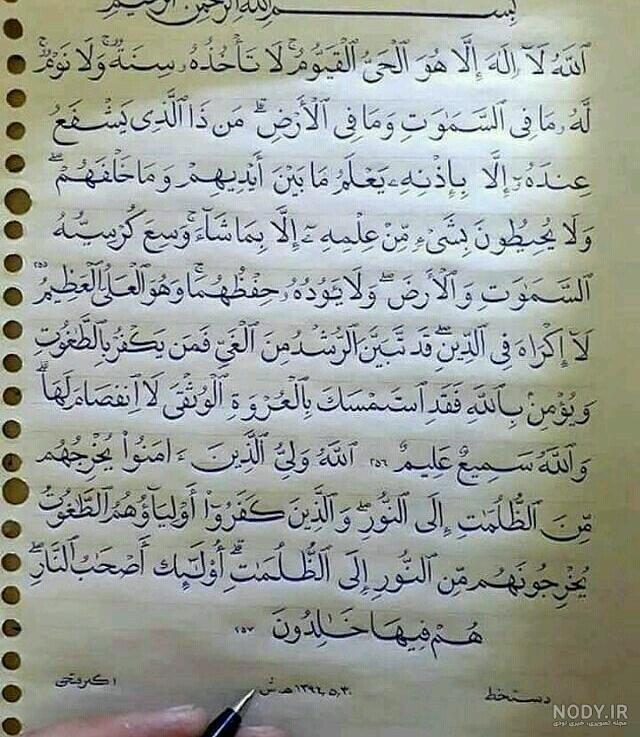 بسم الله الرحمن الرحیم
ٱللَّهُ لَآ إِلَٰهَ إِلَّا هُوَ ٱلْحَىُّ ٱلْقَيُّومُ ۚ لَا تَأْخُذُهُۥ سِنَةٌ وَلَا نَوْمٌ ۚ
لَّهُۥ مَا فِى ٱلسَّمَٰوَٰتِ وَمَا فِى ٱلْأَرْضِ ۗ مَن ذَا ٱلَّذِى يَشْفَعُ
عِندَهُۥٓ إِلَّا بِإِذْنِهِۦ ۚ يَعْلَمُ مَا بَيْنَ أَيْدِيهِمْ وَمَا خَلْفَهُمْ ۖ
وَلَا يُحِيطُونَ بِشَىْءٍ مِّنْ عِلْمِهِۦٓ إِلَّا بِمَا شَآءَ ۚ وَسِعَ كُرْسِيُّهُ
ٱلسَّمَٰوَٰتِ وَٱلْأَرْضَ ۖ وَلَا يَـُٔودُهُۥ حِفْظُهُمَا ۚ وَهُوَ ٱلْعَلِىُّ ٱلْعَظِيمُ ٢٥٥
لَآ إِكْرَاهَ فِى ٱلدِّينِ ۖ قَد تَّبَيَّنَ ٱلرُّشْدُ مِنَ ٱلْغَىِّ ۚ فَمَن يَكْفُرْ بِٱلطَّٰغُوتِ
وَيُؤْمِنۢ بِٱللَّهِ فَقَدِ ٱسْتَمْسَكَ بِٱلْعُرْوَةِ ٱلْوُثْقَىٰ لَا ٱنفِصَامَ لَهَا ۗ
وَٱللَّهُ سَمِيعٌ عَلِيمٌ ٢٥٦ ٱللَّهُ وَلِىُّ ٱلَّذِينَ ءَامَنُوا۟ يُخْرِجُهُم
مِّنَ ٱلظُّلُمَٰتِ إِلَى ٱلنُّورِ ۖ وَٱلَّذِينَ كَفَرُوٓا۟ أَوْلِيَآؤُهُمُ ٱلطَّٰغُوتُ
يُخْرِجُونَهُم مِّنَ ٱلنُّورِ إِلَى ٱلظُّلُمَٰتِ ۗ أُو۟لَٰٓئِكَ أَصْحَٰبُ ٱلنَّارِ ۖ
هُمْ فِيهَا خَٰلِدُونَ ٢٥٧
دستخط
NODY.IR